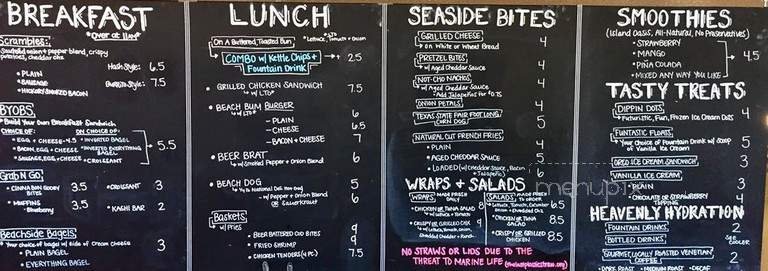 BREAKFAST
*Over at 11AM*
Scrambles:
Sautéed onion + pepper blend, crispy
potatoes, cheddar chz
- PLAIN
- SAUSAGE
- HICKORY SMOKED BACON
Hash Style: 6.5
Burrito Style: 7.5
BYOBS
Build Your Own Breakfast Sandwich
CHOICE OF:
ON CHOICE OF:
• EGG + CHEESE - 4.5
• BACON, EGG + CHEESE
• SAUSAGE, EGG + CHEESE
• INVERTED BAGEL
• INVERTED EVERYTHING BAGEL
• CROISSANT
5.5
Grab N Go
• CINNABON GOOEY BITES 3.5
• MUFFINS Blueberry 3.5
• CROISSANT 3
• KASHI BAR 2
Beachside Bagels
Your choice of bagel w/ side of cream cheese
- PLAIN BAGEL
- EVERYTHING BAGEL
3
LUNCH
On A Buttered, Toasted Bun
*LTO
*Lettuce, Tomato + Onion
COMBO w/ Kettle Chips +
Fountain Drink 2.5
• GRILLED CHICKEN SANDWICH 7.5
w/ LTO*
• BEACH BUM BURGER
w/ LTO*
- PLAIN 6
- CHEESE 6.5
- BACON + CHEESE 7
• BEER BRAT 6
w/ Smoked Pepper + Onion Blend
• BEACH DOG 5
¼ lb National Deli Hot Dog
- w/ Pepper + Onion Blend 6
or Sauerkraut
Baskets
w/ Fries
• BEER BATTERED COD BITES 9
• FRIED SHRIMP 9
• CHICKEN TENDERS (4 PC.) 7.5
SEASIDE BITES
GRILLED CHEESE 4
on White or Wheat Bread
PRETZEL BITES 4
w/ Aged Cheddar Sauce
NOT-CHO NACHOS 4
w/ Aged Cheddar Sauce
- Add Jalapeños for $0.75
ONION PETALS 4
TEXAS STATE FAIR FOOT LONG
CORN DOG 5
NATURAL CUT FRENCH FRIES
- PLAIN 4
- AGED CHEDDAR SAUCE 5
- LOADED (w/ Cheddar Sauce, Bacon + Jalapeño) 6
WRAPS + SALADS
WRAPS: MADE FRESH DAILY
• CHICKEN OR TUNA SALAD 8
w/ Lettuce + Tomato
• CRISPY OR GRILLED CHX 9
w/ Lettuce, Tomato, Onion,
Shredded Cheddar + Ranch
SALADS: MADE TO ORDER
Lettuce, Tomato, Cucumber 6.5
Onion + Shredded Chz
• CHICKEN OR TUNA SALAD 8.5
• CRISPY OR GRILLED CHICKEN 8.5
NO STRAWS OR LIDS DUE TO THE
THREAT TO MARINE LIFE
SMOOTHIES
(Island Oasis, All-Natural, No Preservatives)
- STRAWBERRY
- MANGO
- PIÑA COLADA
- MIXED ANY WAY YOU LIKE
4.5
TASTY TREATS
DIPPIN DOTS 4
Futuristic, Fun, Frozen Ice Cream Dots
FUNTASTIC FLOATS 5
Your Choice of Fountain Drink w/ Scoop
of Vanilla Ice Cream
OREO ICE CREAM SANDWICH 3
VANILLA ICE CREAM
- PLAIN 3
- CHOCOLATE OR STRAWBERRY TOPPING 4
HEAVENLY HYDRATION
FOUNTAIN DRINKS 2
BOTTLED DRINKS SEE COOLER
GOURMET LOCALLY ROASTED VENETIAN
COFFEE 2
DARK ROAST • MEDIUM ROAST • DECAF
menupix